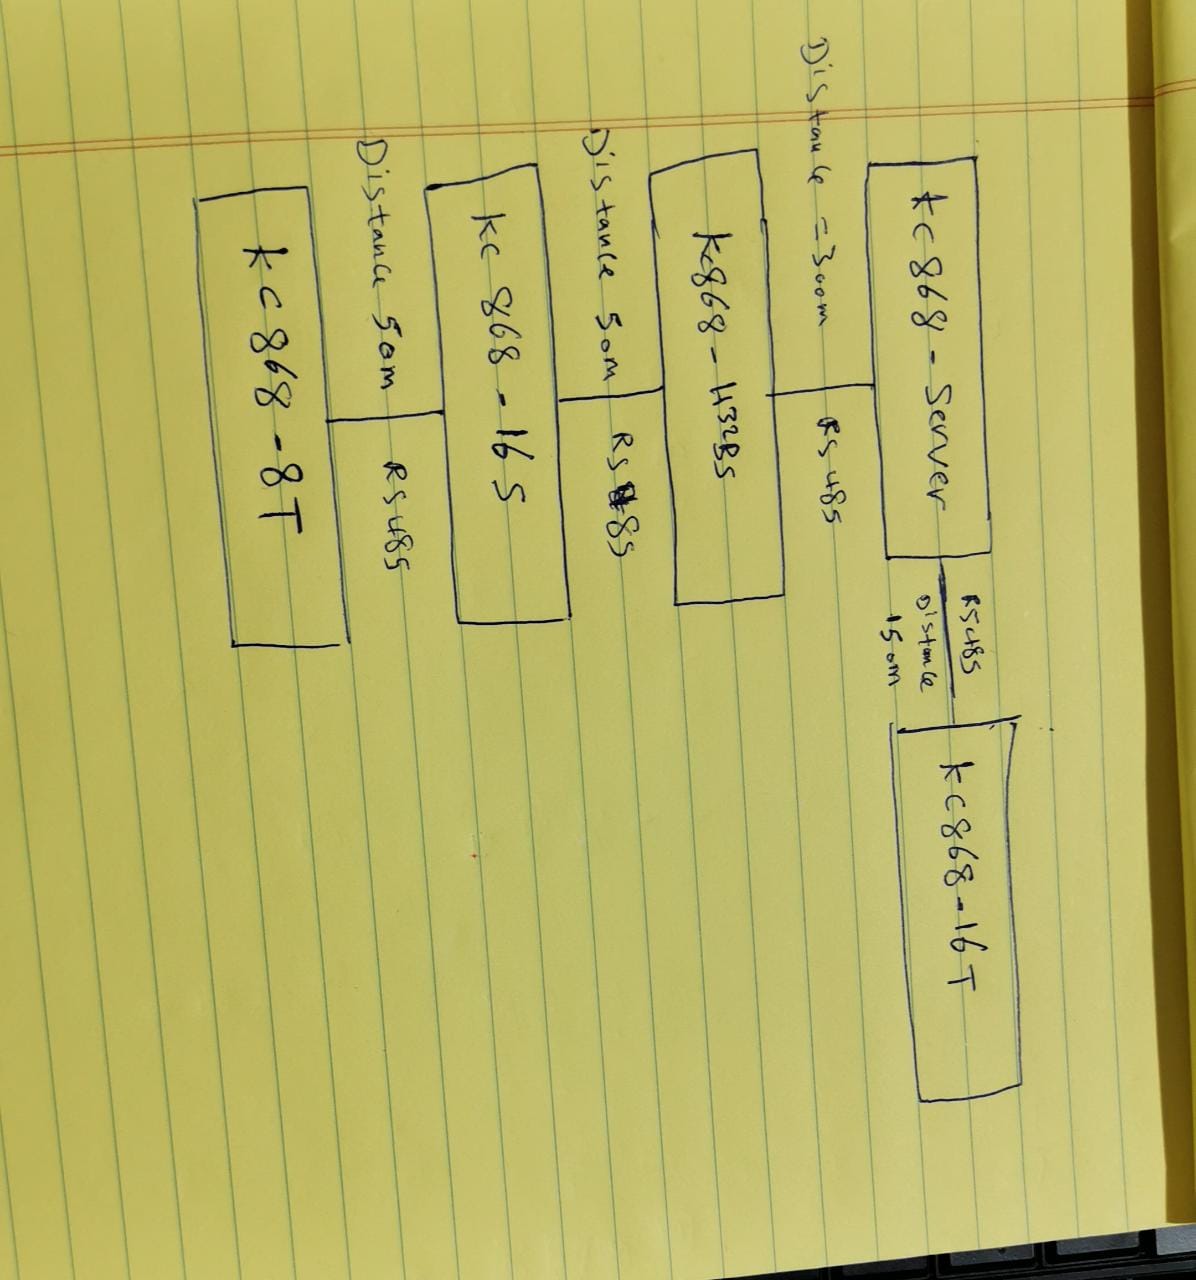 KC868-Server
RS485
Distance
150m
KC868-16T
Distance = 300m
RS485
KC868-H32BS
Distance 50m
RS485
KC868-16S
Distance 50m
RS485
KC868-8T